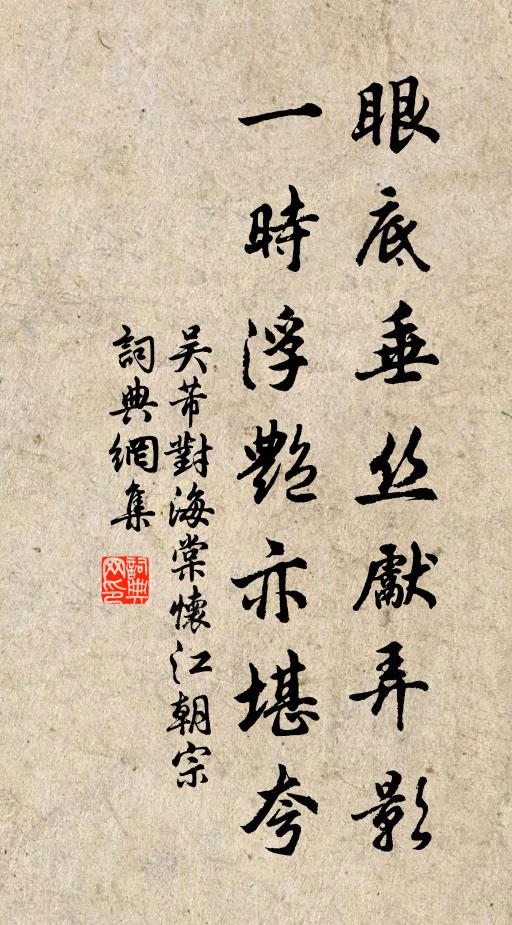 眼底垂丝獻弄影
一時浮艷亦堪夸
吴芾對海棠懷江朝宗
詞典網集
詞典网印